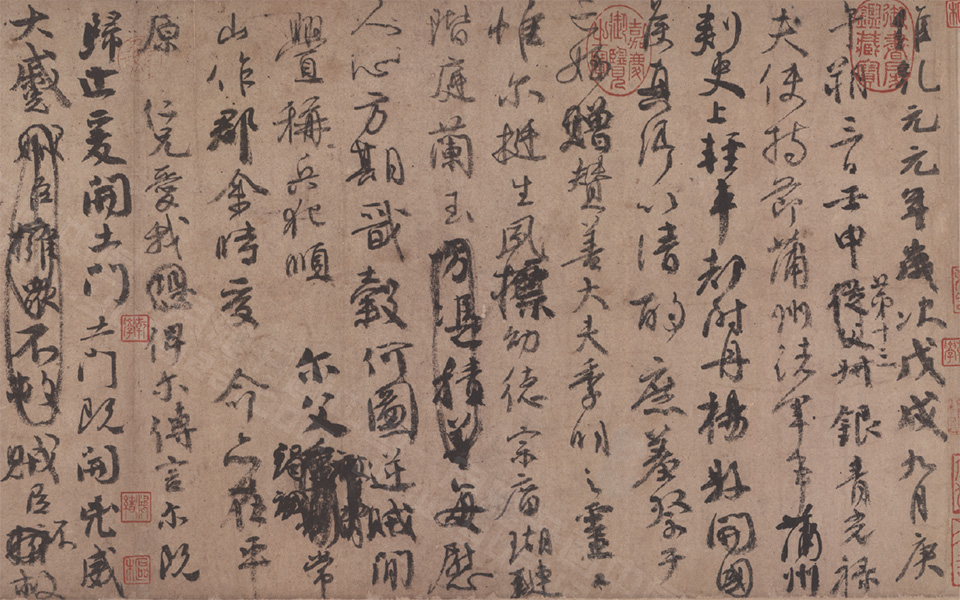 維乾元元年歲次戊戌九月庚
午朔三日壬申第十三從父銀青光祿
夫使持節蒲州諸軍事蒲州
刺史上輕車都尉丹楊縣開國
侯真卿以清酌庶羞祭于
亡姪贈贊善大夫季明之靈曰
惟爾挺生夙標幼德宗廟瑚璉
階庭蘭玉方憑積善每慰
人心方期戩穀何圖逆賊間
釁稱兵犯順 爾父竭誠常
山作郡余時受命亦在平
原仁兄愛我恐俾爾傳言爾既
歸止爰開土門土門既開凶威
大蹙賊臣擁眾不救賊臣不救